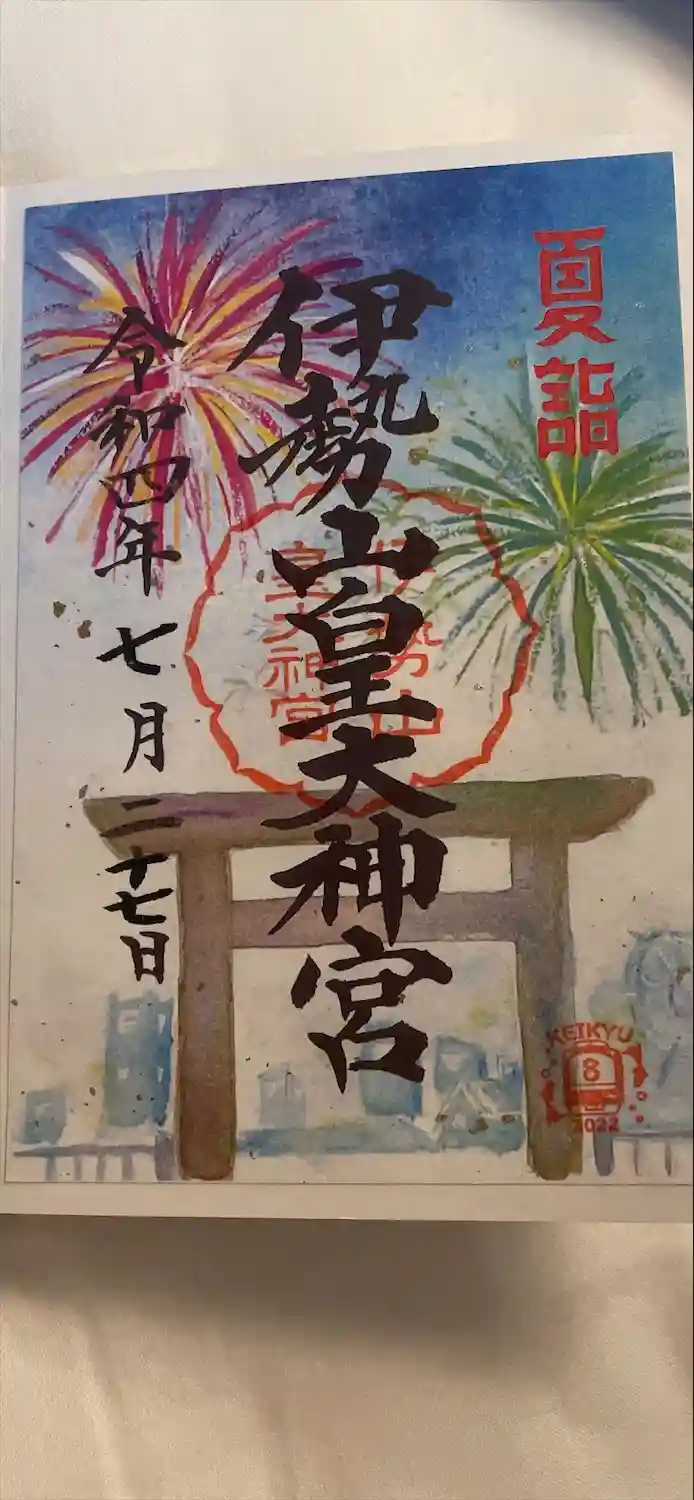 夏詣
伊勢山皇大神宮
伊勢山
皇大神宮
令和四年七月二十七日
KEIKYU
8
2022